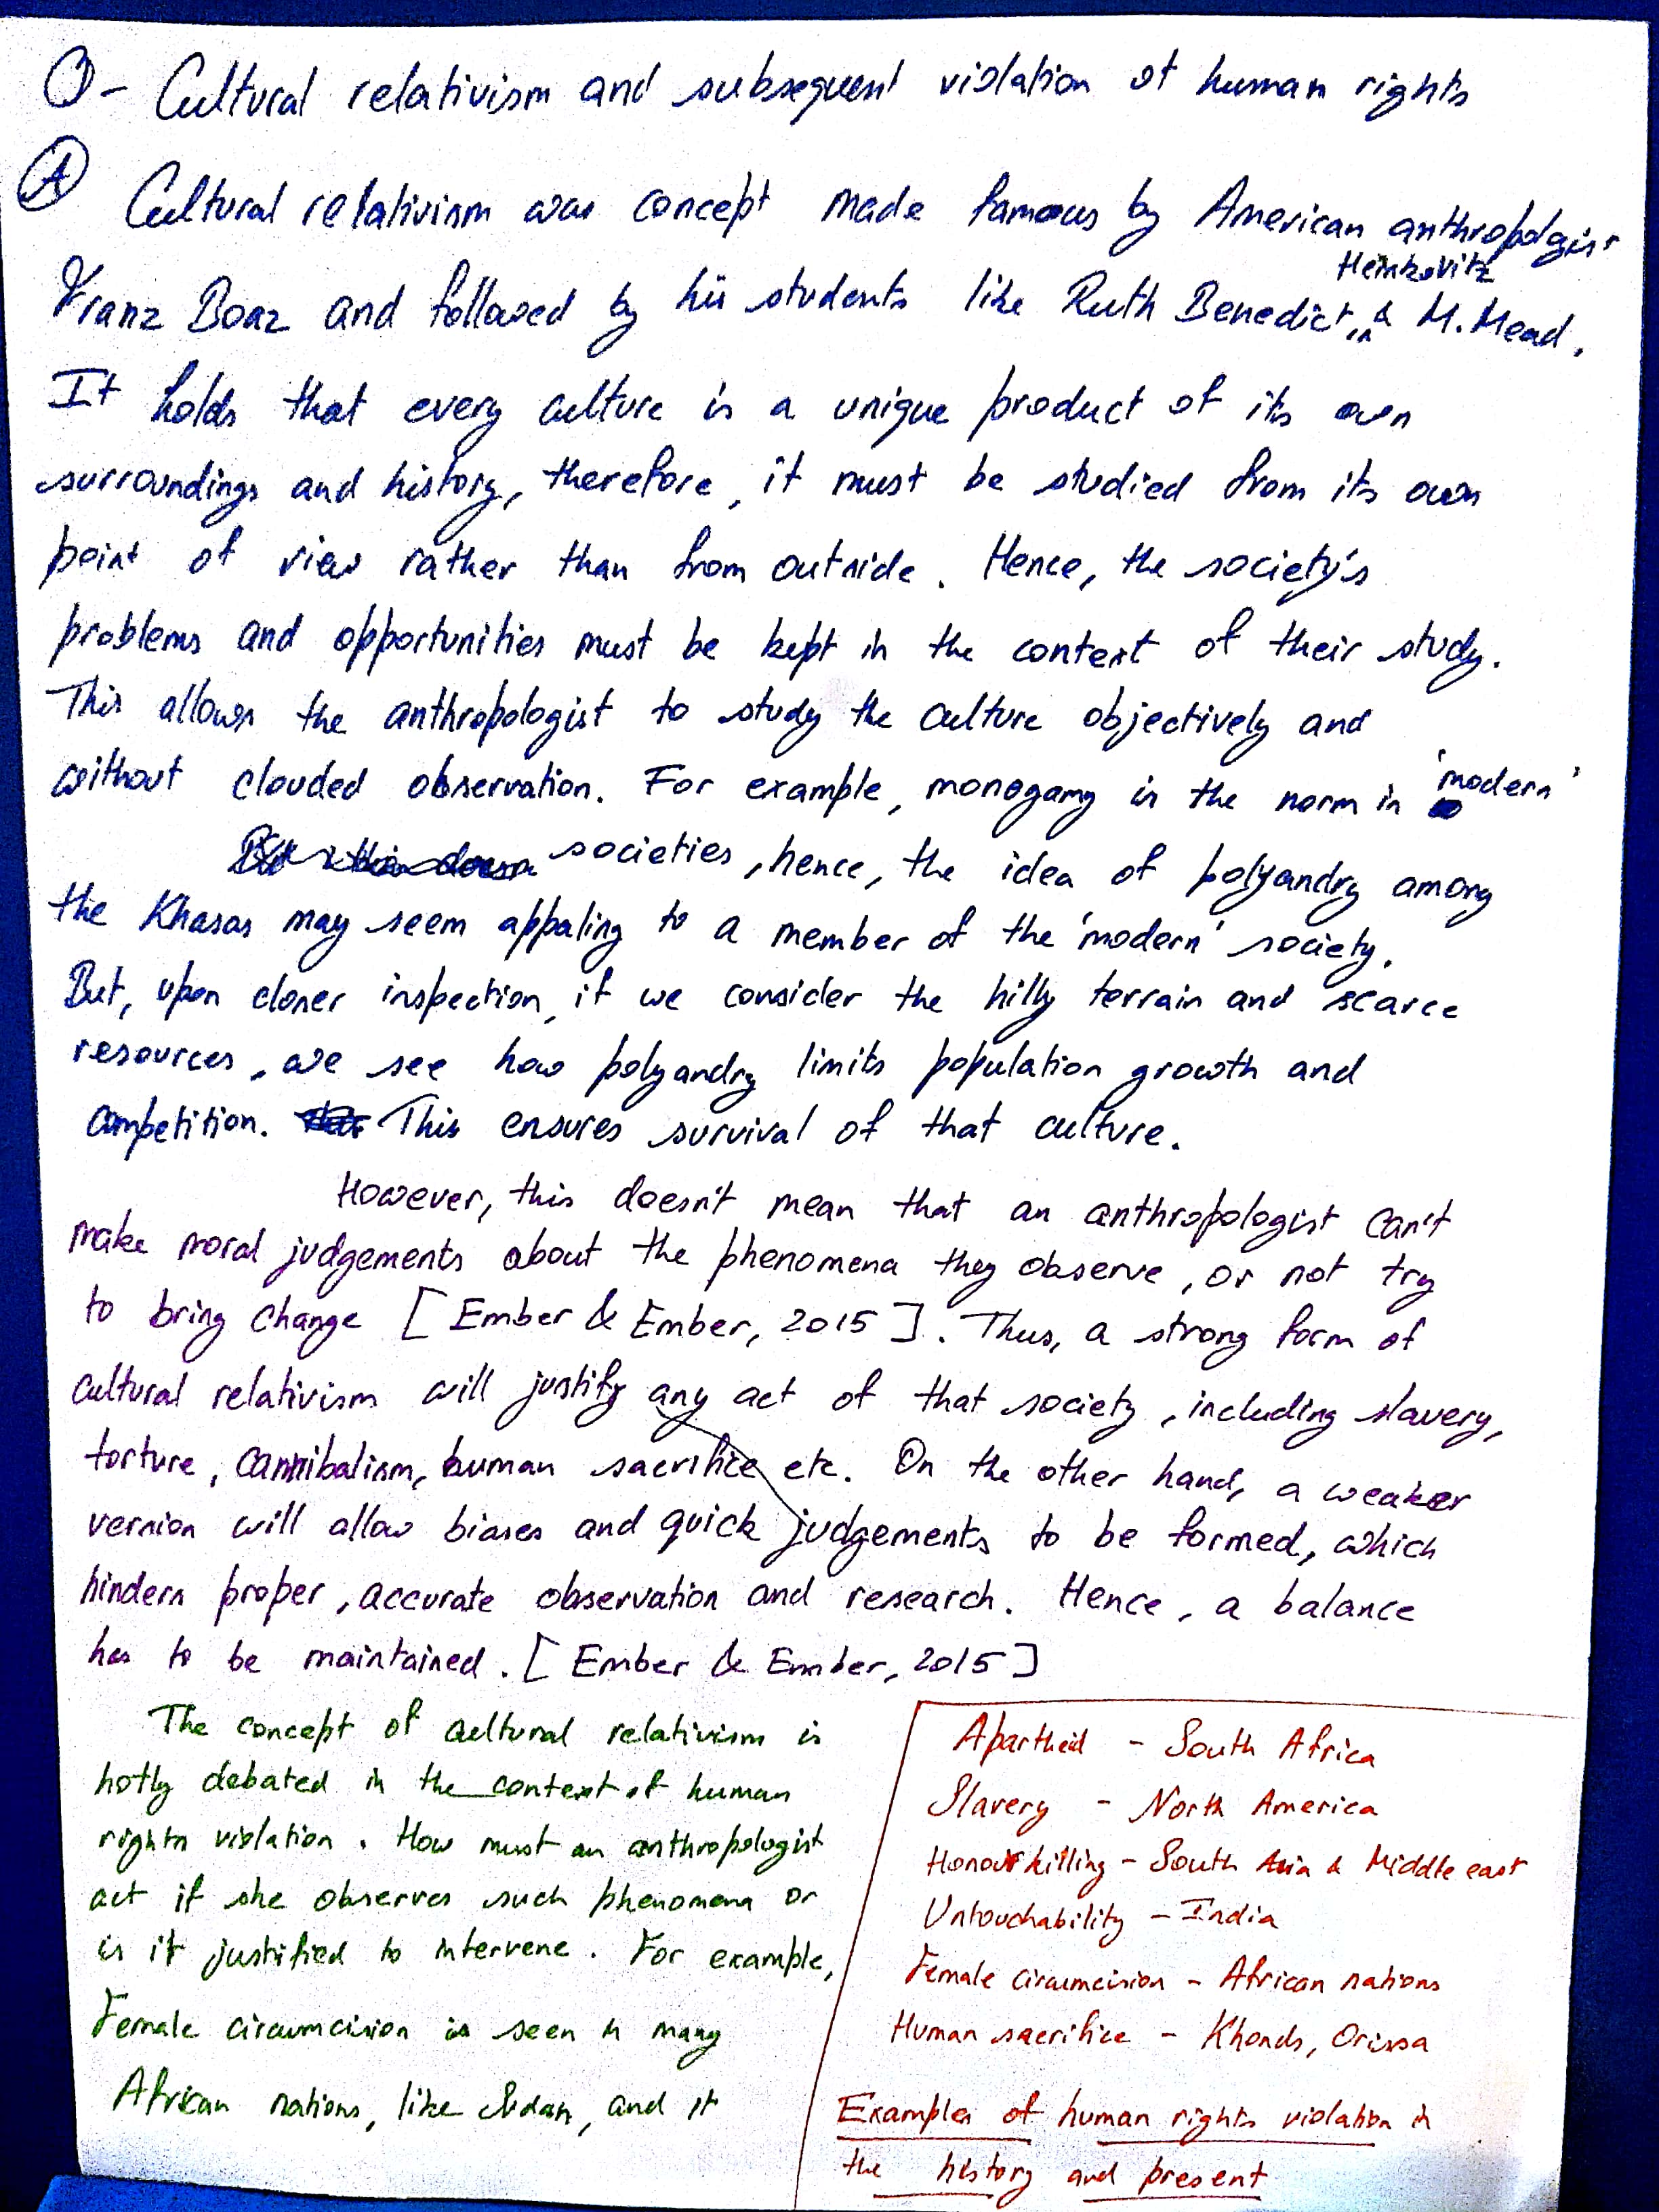 Q- Cultural relativism and subsequent violation of human rights
A Cultural relativism was concept made famous by American anthropologist
Franz Boaz and followed by his students like Ruth Benedict, Herskovitz & M. Mead.
It holds that every culture is a unique product of its own
surroundings and history, therefore, it must be studied from its own
point of view rather than from outside. Hence, the society's
problems and opportunities must be kept in the context of their study.
This allows the anthropologist to study the culture objectively and
without clouded observation. For example, monogamy is the norm in 'modern'
societies, hence, the idea of polyandry among
the Khasas may seem appaling to a member of the 'modern' society.
But, upon closer inspection, if we consider the hilly terrain and scarce
resources, we see how polyandry limits population growth and
competition. This ensures survival of that culture.
However, this doesn't mean that an anthropologist can't
make moral judgements about the phenomena they observe, or not try
to bring change [Ember & Ember, 2015]. Thus, a strong form of
cultural relativism will justify any act of that society, including slavery,
torture, cannibalism, human sacrifice etc. On the other hand, a weaker
version will allow biases and quick judgements to be formed, which
hinders proper, accurate observation and research. Hence, a balance
has to be maintained. [Ember & Ember, 2015]
The concept of cultural relativism is
hotly debated in the context of human
rights violation. How must an anthropologist
act if she observes such phenomena or
is it justified to intervene. For example,
Female circumcision is seen in many
African nations, like Sudan, and it
Apartheid - South Africa
Slavery - North America
Honour killing - South Asia & Middle east
Untouchability - India
Female circumcision - African nations
Human sacrifice - Khonds, Orissa
Examples of human rights violation in
the history and present